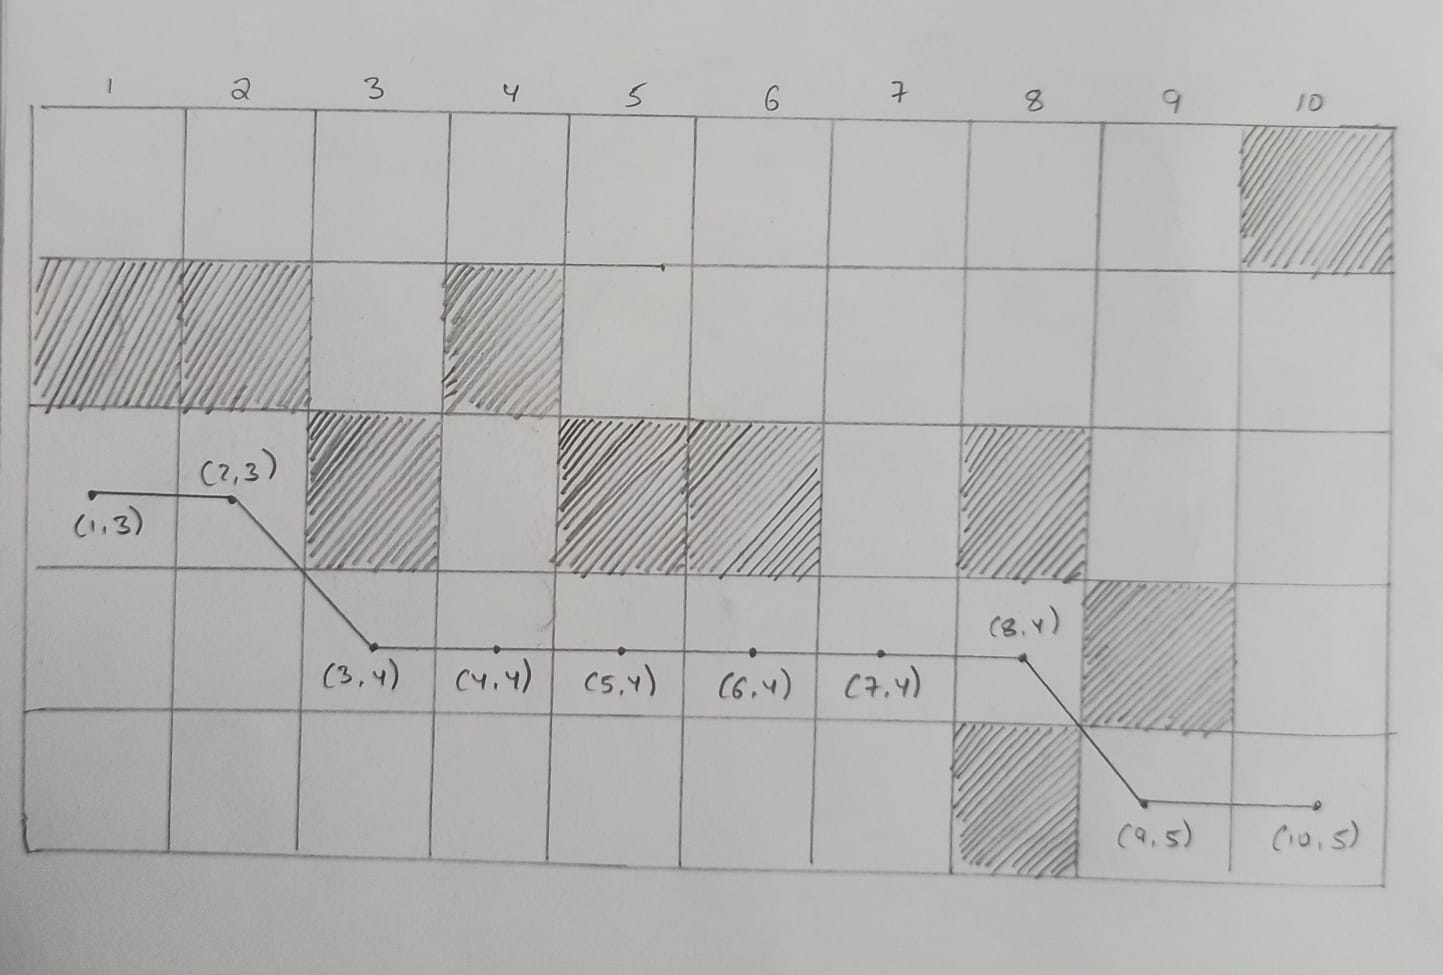 1 2 3 4 5 6 7 8 9 10
(2,3)
(1,3)
(8,4)
(3,4) (4,4) (5,4) (6,4) (7,4)
(9,5) (10,5)